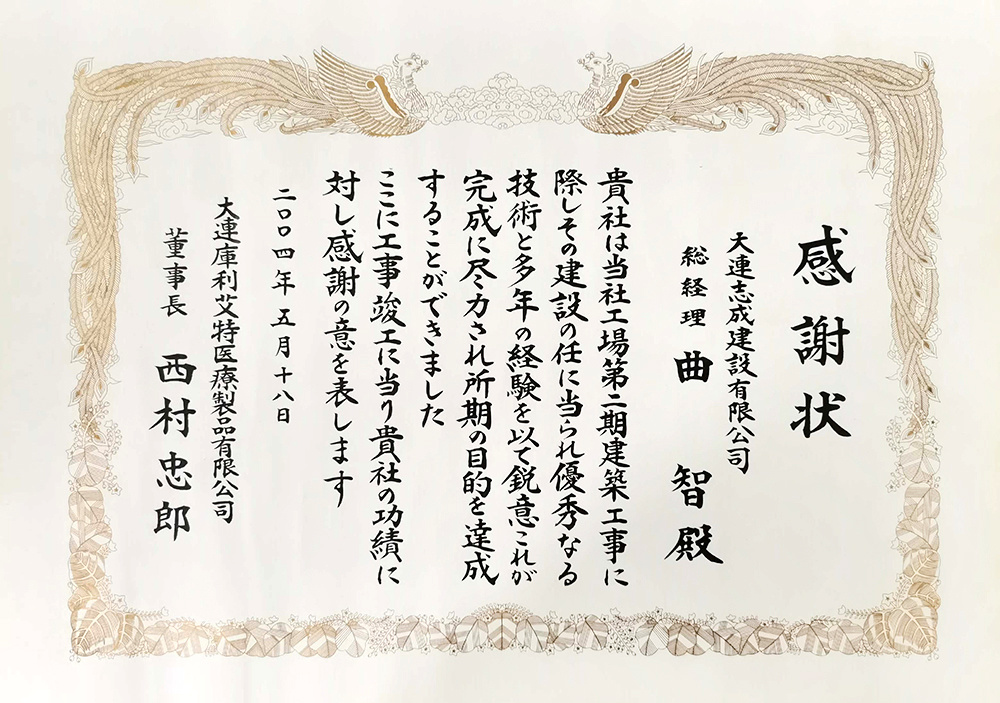 感謝状
大連志成建設有限公司
総経理 曲 智殿
貴社は当社工場第二期建築工事に
際しその建設の任に当られ優秀なる
技術と多年の経験を以て鋭意これが
完成に尽力され所期の目的を達成
することができました
ここに工事竣工に当り貴社の功績に
対し感謝の意を表します
二〇〇四年五月十八日
大連庫利艾特医療製品有限公司
董事長 西村忠郎